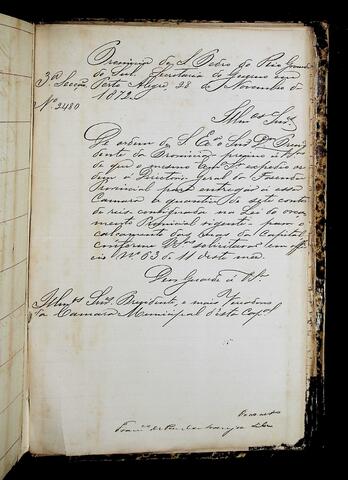 Provincia de S. Pedro do Rio Grande
do Sul. Secretaria do Governo em
3ª Secção Porto Alegre, 28 de Novembro de
Nº 2480 1872.
Illmos Snrs
De ordem de S. Exª o Snr Dr Presi
dente da Provincia previno a Vs
de que o mesmo expedio or
dem á Directoria Geral da Fazenda
Provincial para entregar á essa
Camara a quantia de sete contos
de reis consignada na Lei do orça
mento Provincial vigente para o
calçamento das ruas da Capital
conforme Vs solicitarão em offi
cio Nº 63 de 11 deste mez.
Deus Guarde á Vs.
Illmos Snrs Presidente, e mais Vereadores
da Camara Municipal d'esta Capal